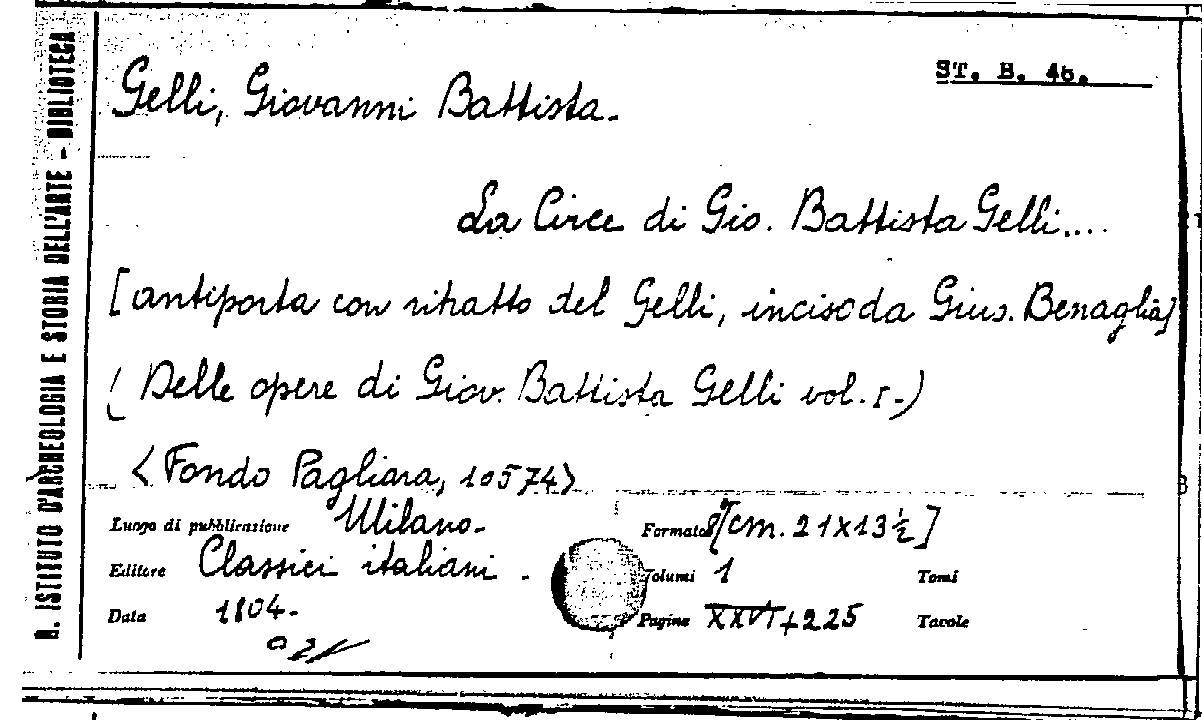 R. ISTITUTO D'ARCHEOLOGIA E STORIA DELL'ARTE - BIBLIOTECA
ST. B. 46.
Gelli, Giovanni Battista.
La Circe di Gio. Battista Gelli....
[antiporta con ritratto del Gelli, inciso da Gius. Benaglia]
(Delle opere di Giov. Battista Gelli vol. I.)
<Fondo Pagliara, 10574>
Luogo di pubblicazione Milano. Formato 8º [cm. 21x13½]
Editore Classici italiani. Volumi 1 Tomi
Data 1804. Pagine XXVI+225 Tavole